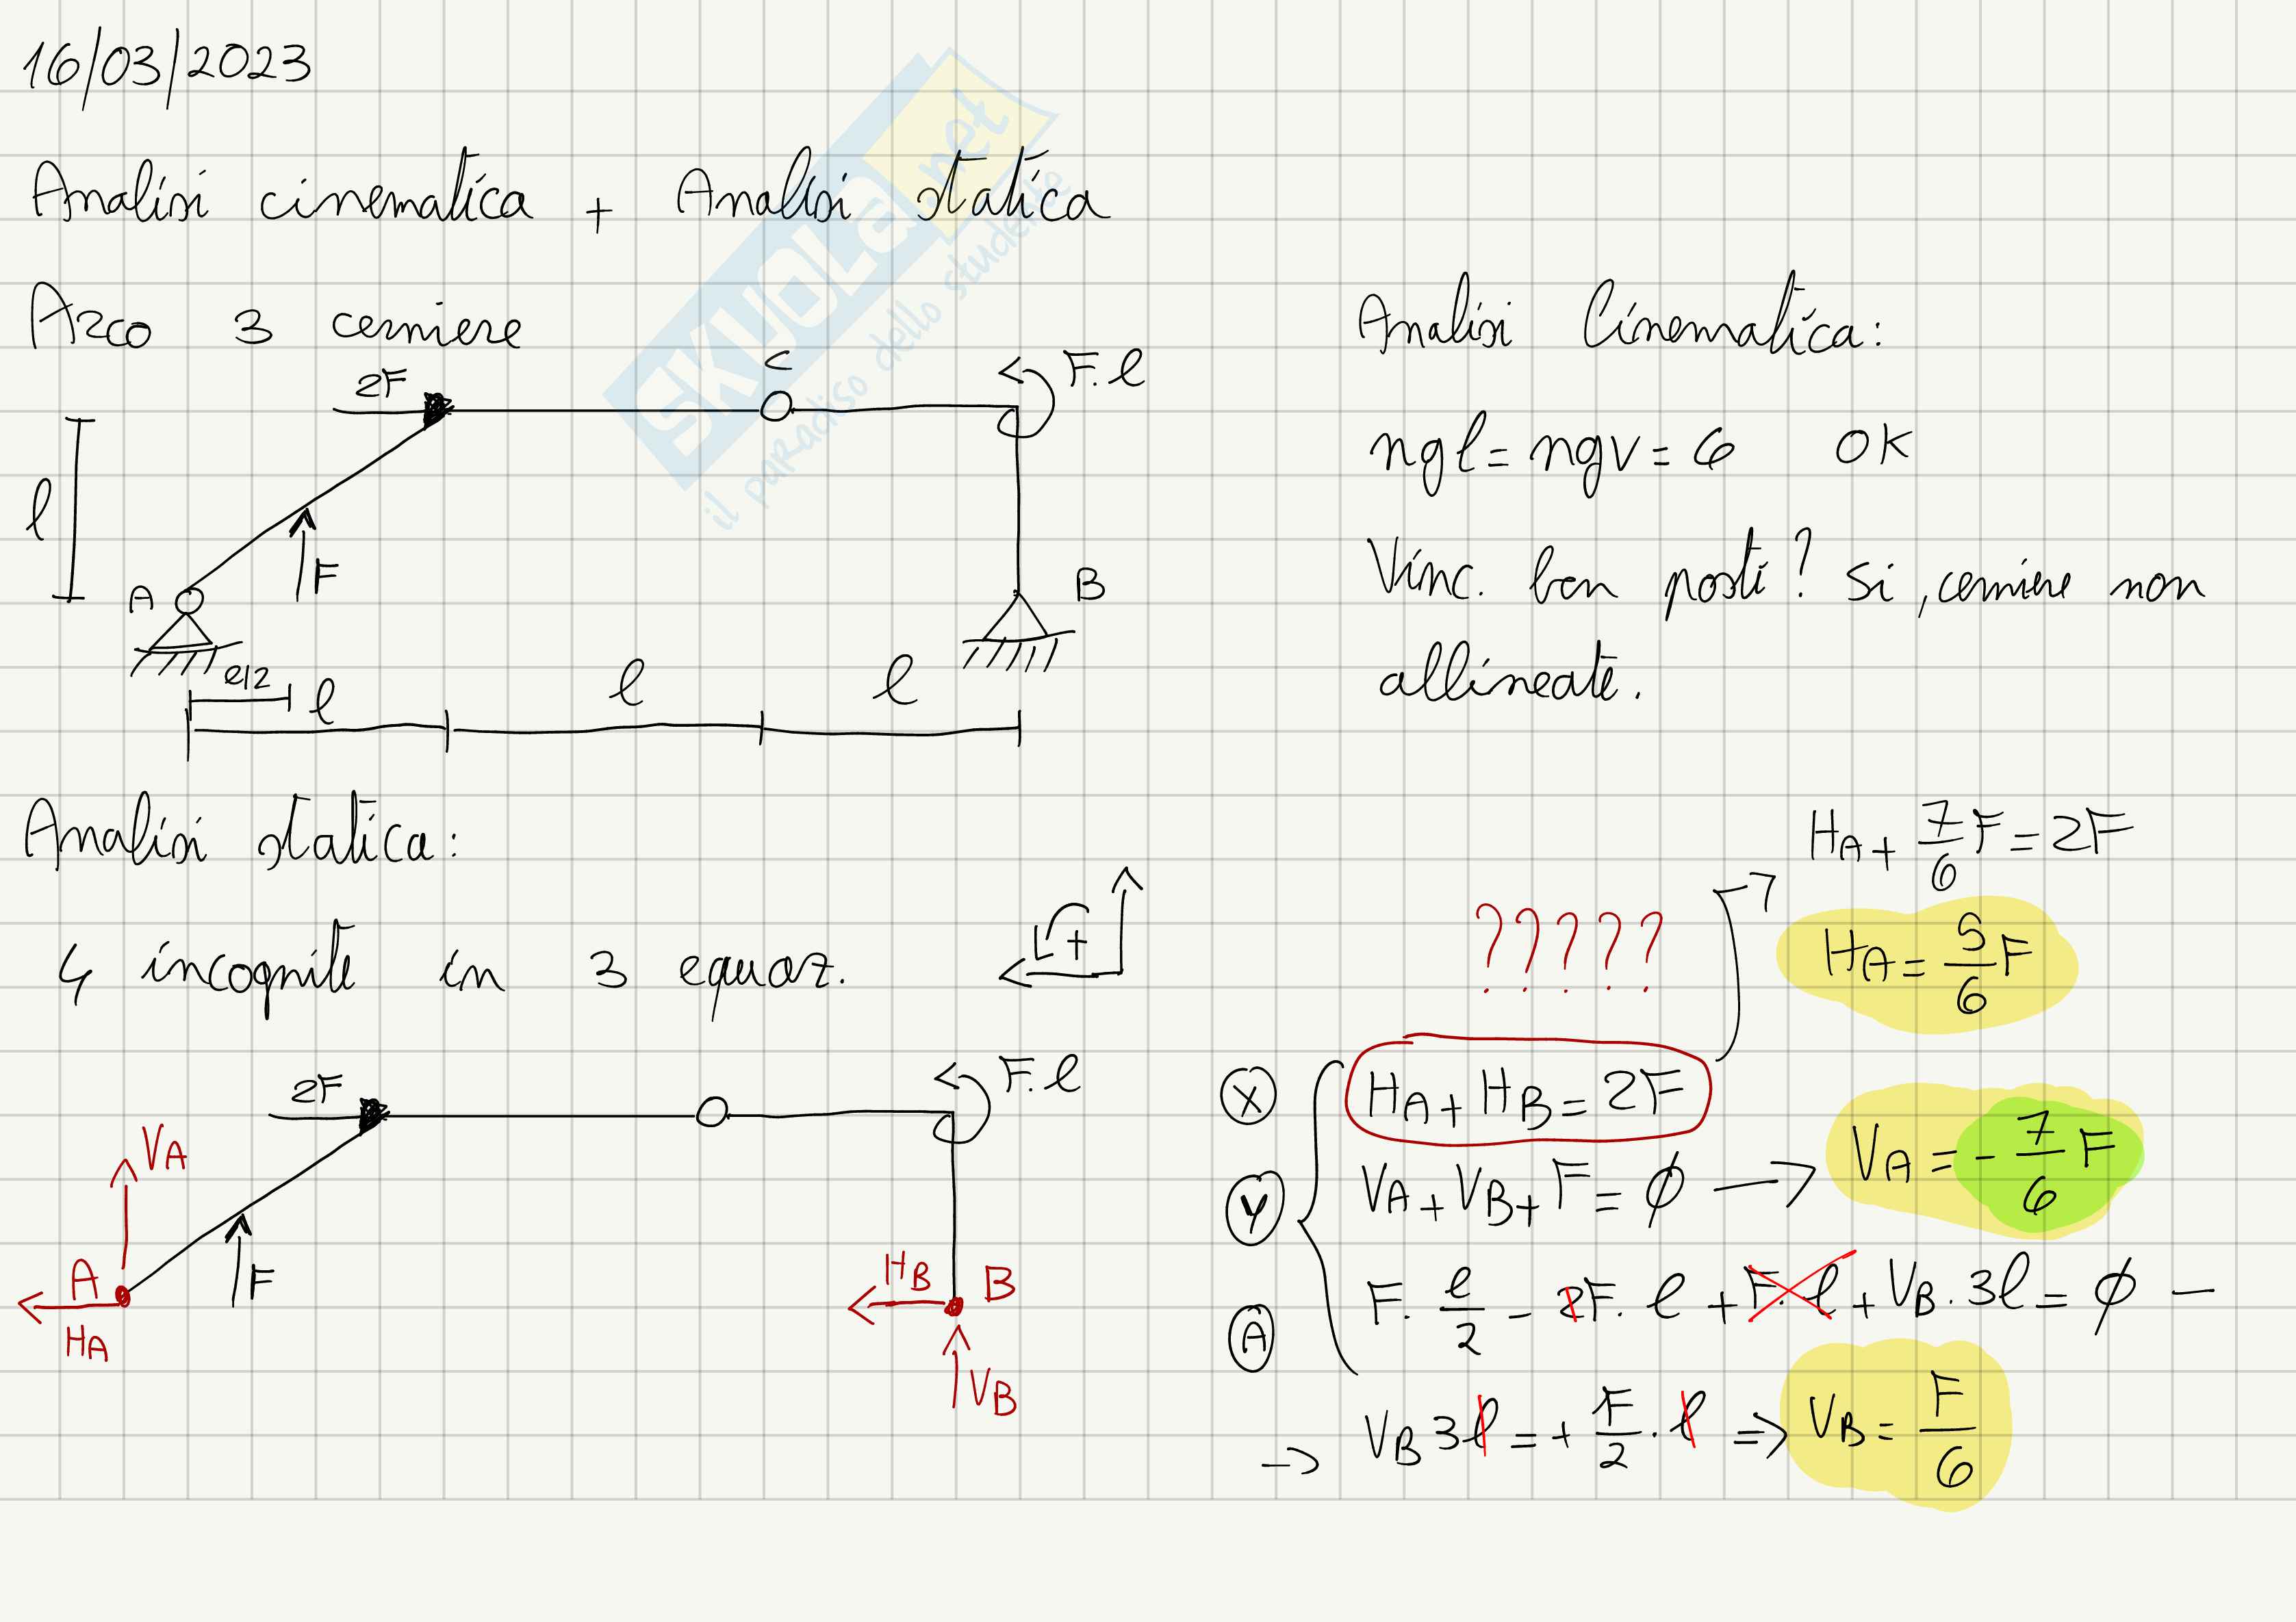 16/03/2023
Analisi cinematica + Analisi statica
Arco 3 cerniere
2F
C
F.l
l
F
A
B
l/2
l
l
l
Analisi Cinematica:
ngl = ngv = 6 OK
Vinc. ben posti? Si, cerniere non
allineate.
Analisi statica:
4 incognite in 3 equaz.
+
2F
F.l
VA
A
HA
F
HB
B
VB
?????
HA + 7/6 F = 2F
HA = 5/6 F
X
HA + HB = 2F
Y
VA + VB + F = ∅ → VA = - 7/6 F
A
F. l/2 - 2F. l + F.l + VB. 3l = ∅ -
→ VB 3l = + F/2 . l => VB = F/6
SKUOLA.net
il paradiso dello studente